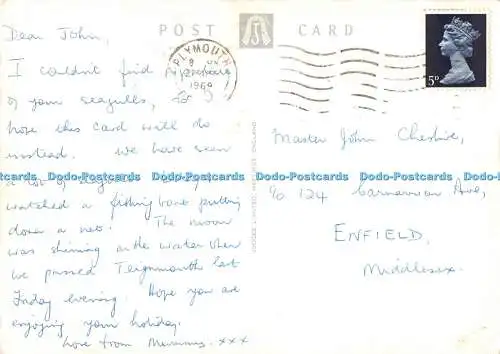 POST CARD
Dear John,
I couldn't find
of your seagulls, so I
hope this card will do
instead. We have seen
a lot of
watched a fishing boat putting
down a net. The moon
was shining on the water when
we passed Teignmouth last
Friday evening. Hope you are
enjoying your holiday.
Love from Mummy. xxx
PLYMOUTH
1969
5D
Master John Cheshire,
c/o 124 Carnarvon Ave,
ENFIELD,
Middlesex.
Dodo-Postcards Dodo-Postcards Dodo-Postcards Dodo-Postcards Dodo-Postcards